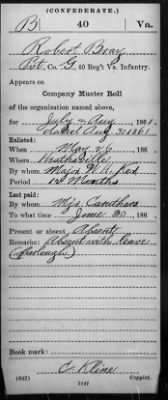 (CONFEDERATE.)
B 40 Va.
Robert Bray
Pvt, Co. G, 40 Reg't Va. Infantry.
Appears on
Company Muster Roll
of the organization named above,
for July & Aug, 1861.
dated Aug 31 1861
Enlisted:
When May 26, 186 .
Where Heathsville
By whom Major W. H.
Period 12 Months
Last paid:
By whom Maj. Caruthers
To what time June 30, 186 .
Present or absent Absent
Remarks: Absent with leave
(furlough)
Book mark:
C. Kline
(642) Copyist.